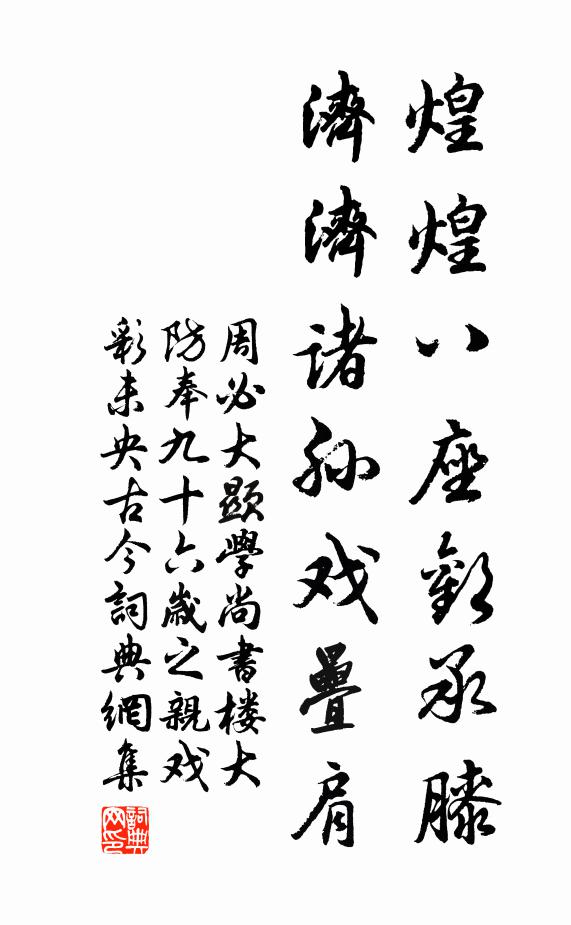 煌煌八座歡承膝
濟濟诸孙戏疊肩
周必大顕學尚書楼大
防奉九十六歲之親戏
彩未央古今詞典網集
詞典网印